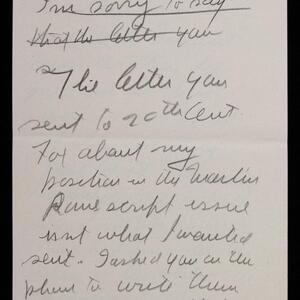 I'm sorry to say
that the letter you
The letter you
sent to 20th Cent.
Fox about my
position in the Marlin
Rowe script issue
isnt what I wanted
sent. I asked you on the
phone to write them